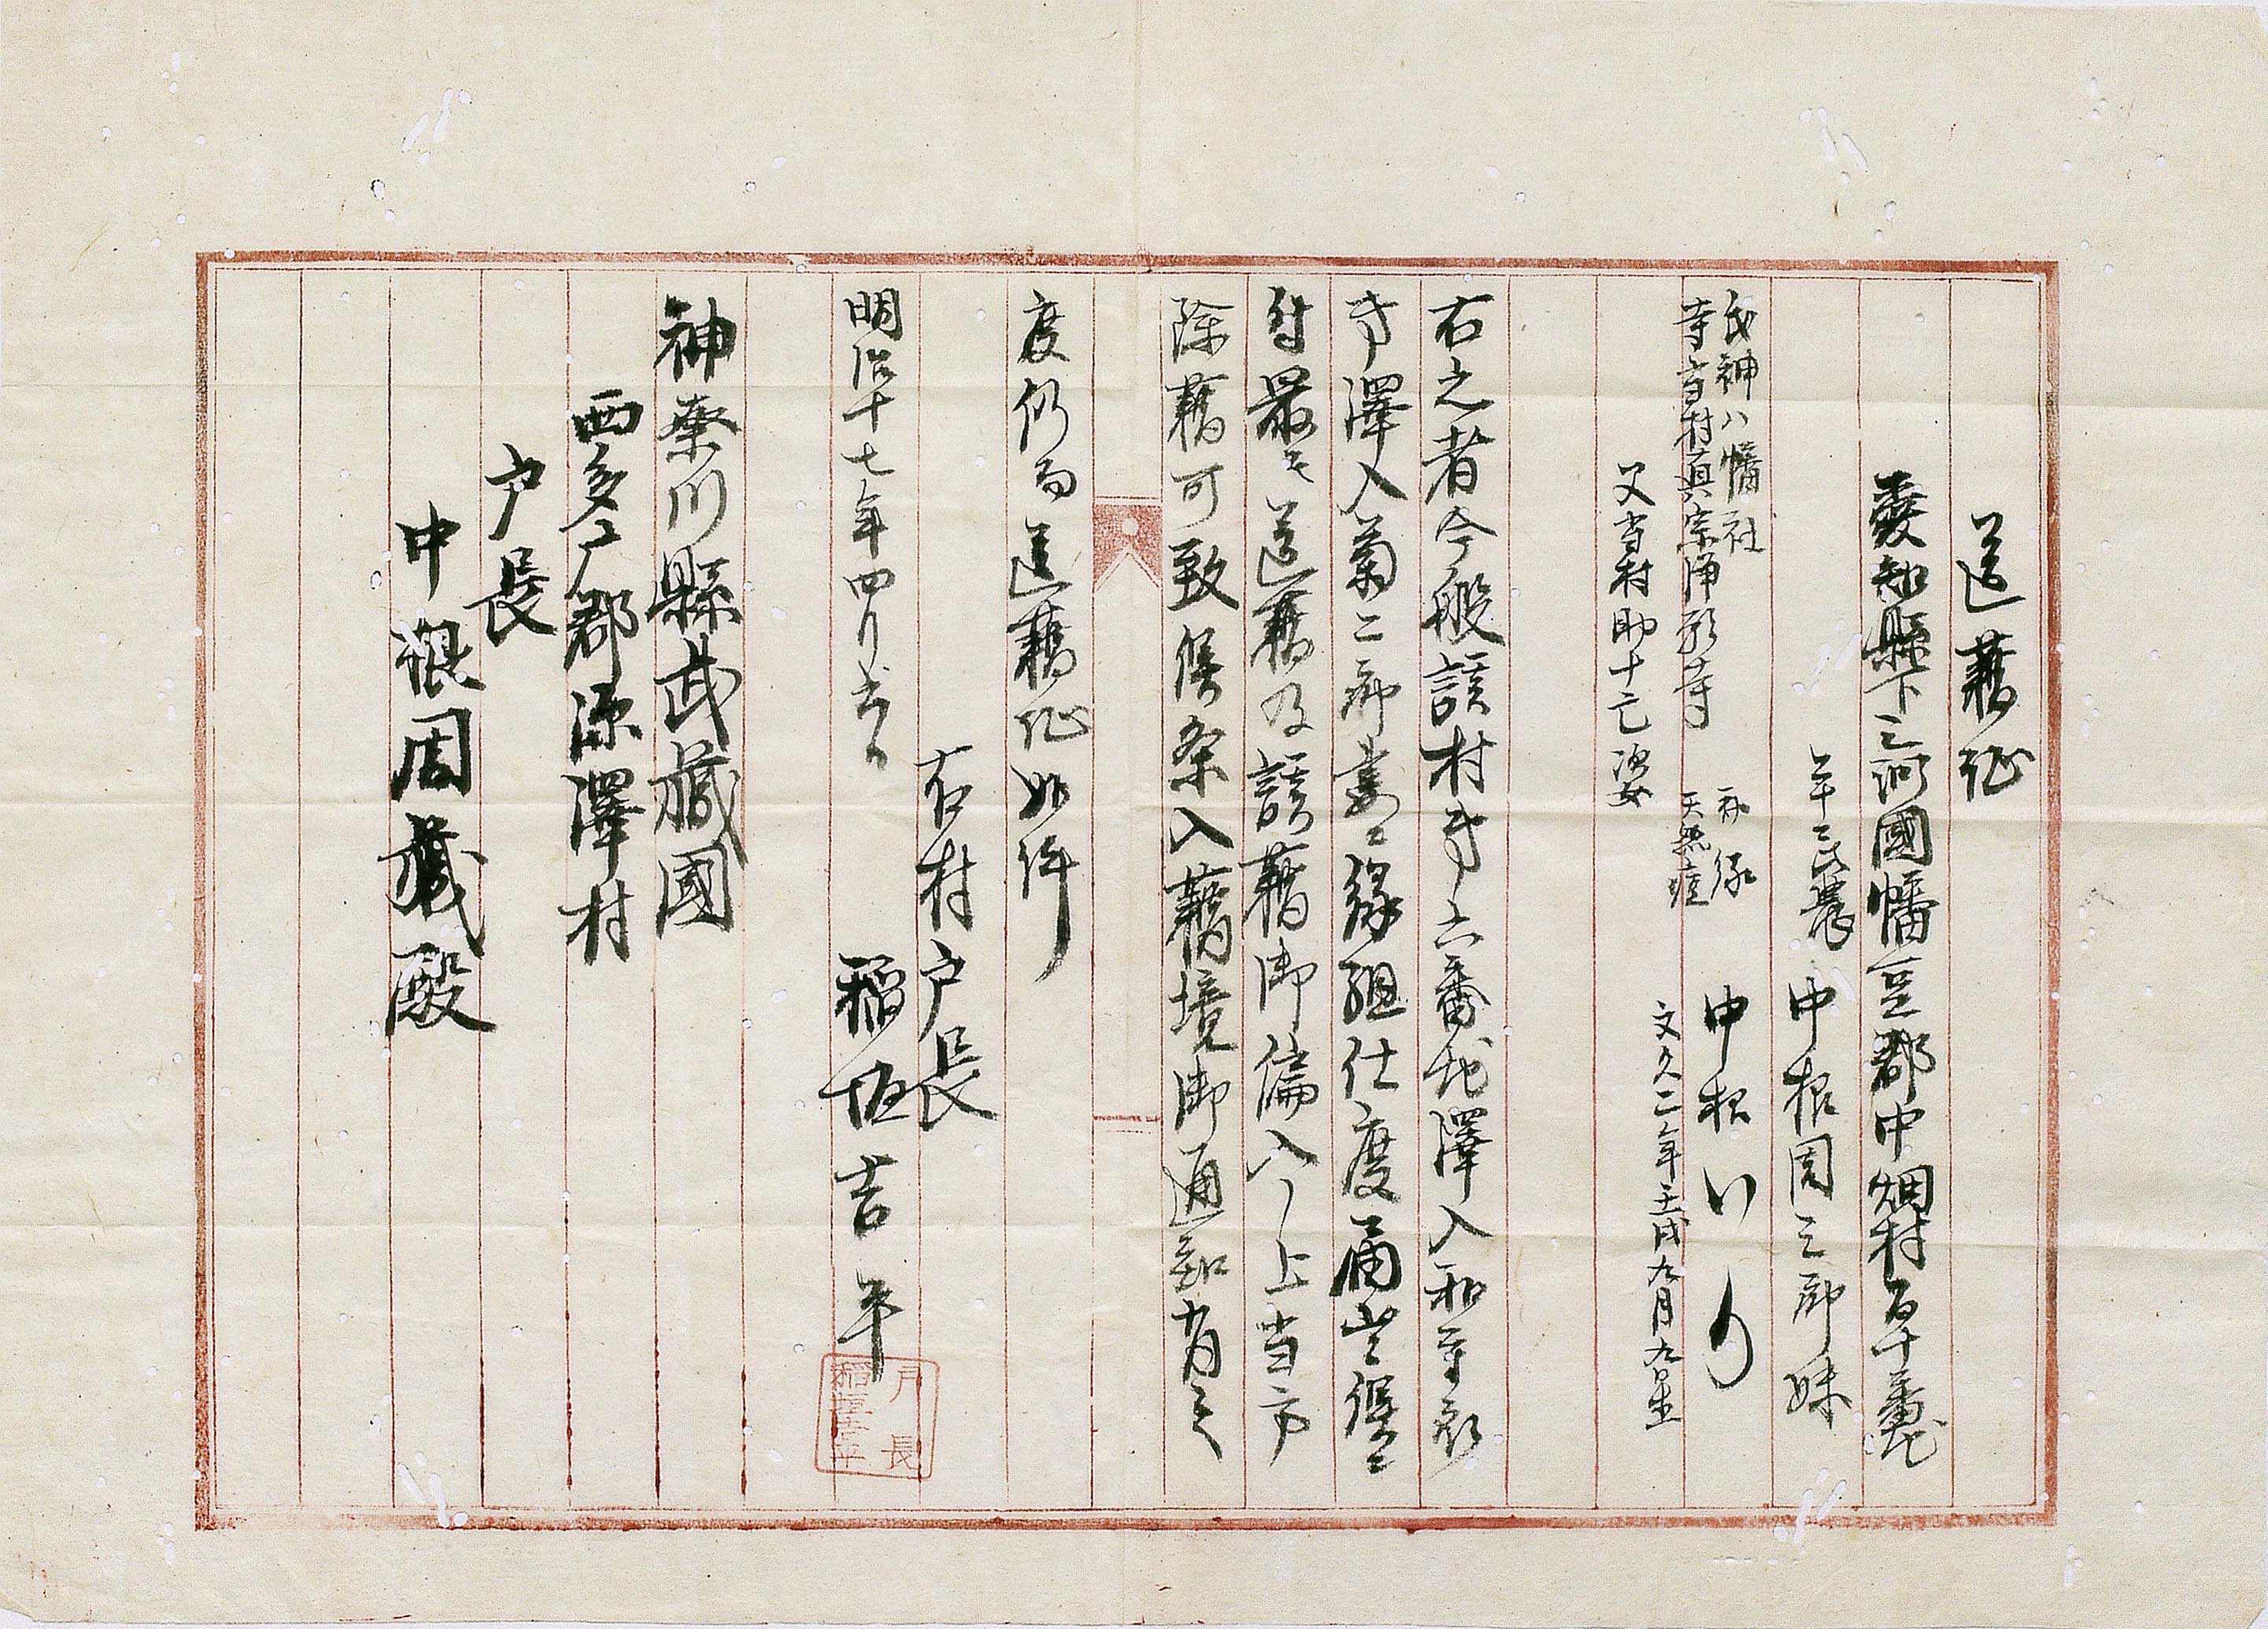 送籍証
愛知縣下三河國幡豆郡中畑村百十番地
平民農
中根周三郎妹
氏神八幡社
寺当村真宗浄顕寺
天然痘
中根りり
文久二年壬戌九月九日生
父当村助十亡次女
右之者今般該村第六番地澤入和重郎
方澤入菊二郎妻ニ縁組仕度旨申出候ニ
付最モ送籍及該籍御編入ノ上当方
除籍可致候条入籍境御通知有之
度仍而送籍証如件
右村戸長
明治十七年四月
稲垣吉平
戸長
稲垣吉平
神奈川縣武蔵國
西多摩郡深澤村
戸長
中根周蔵殿